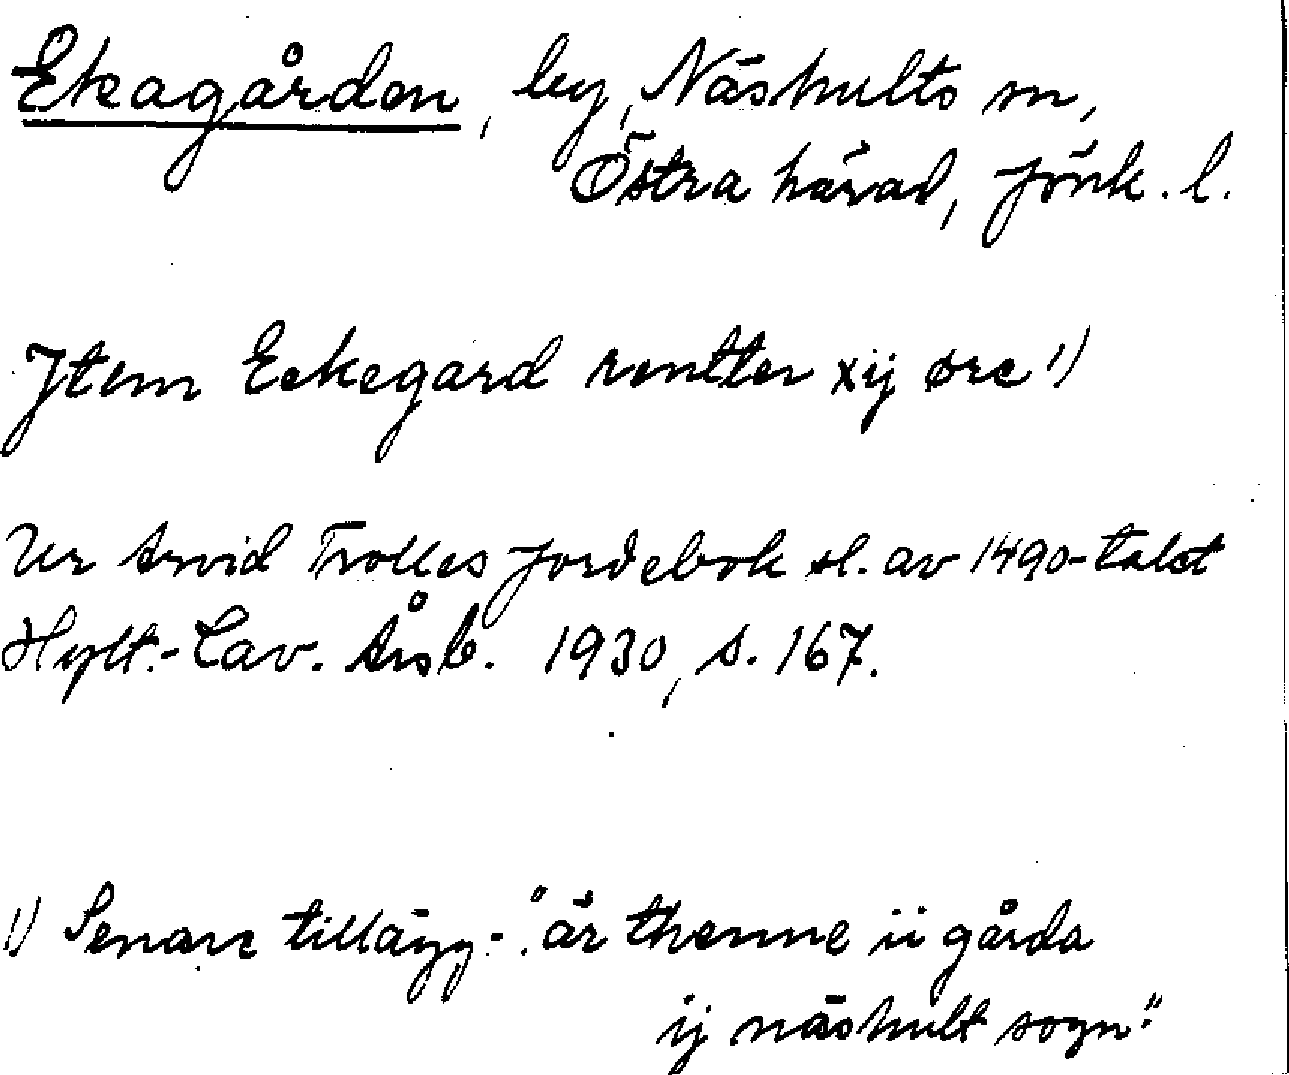 Ekagården, by, Näshults sn,
Östra härad, Jönk. l.
Jtem Eekegard rentter xij øre 1)
Ur Arvid Trolles Jordebok sl. av 1490-talet
Hylt.-Cav. Årsb. 1930, s. 167.
1) Senare tillägg: "är thenne ii gårda
ij näshult sogn."